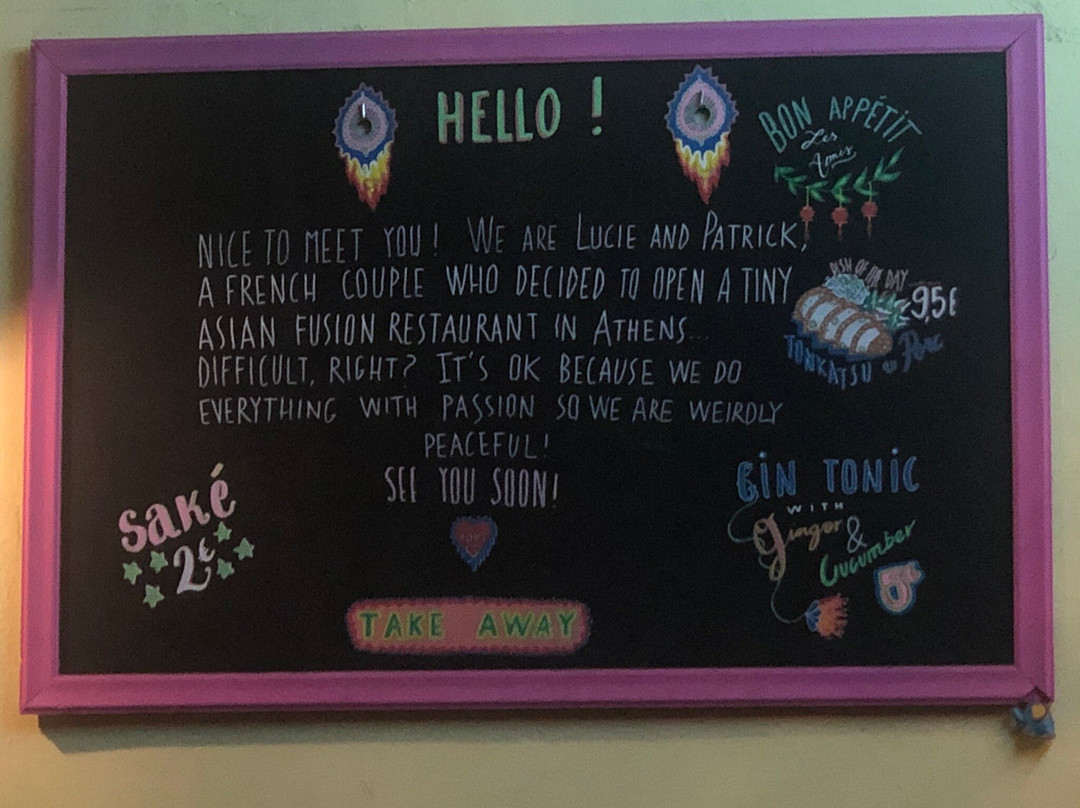 HELLO !
BON APPÉTIT
Les
NICE TO MEET YOU! WE ARE LUCIE AND PATRICK,
A FRENCH COUPLE WHO DECIDED TO OPEN A TINY
ASIAN FUSION RESTAURANT IN ATHENS...
DIFFICULT, RIGHT? IT'S OK BECAUSE WE DO
EVERYTHING WITH PASSION SO WE ARE WEIRDLY
PEACEFUL!
SEE YOU SOON!
DISH OF THE DAY
9,5€
TONKATSU au Porc
saké
2€
GIN TONIC
WITH
Ginger &
Cucumber
TAKE AWAY